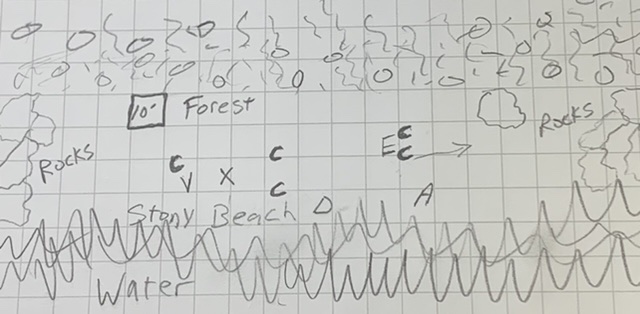 10' Forest
Rocks
Rocks
C
C
E C
C
V X
C
Stony Beach D
A
Water